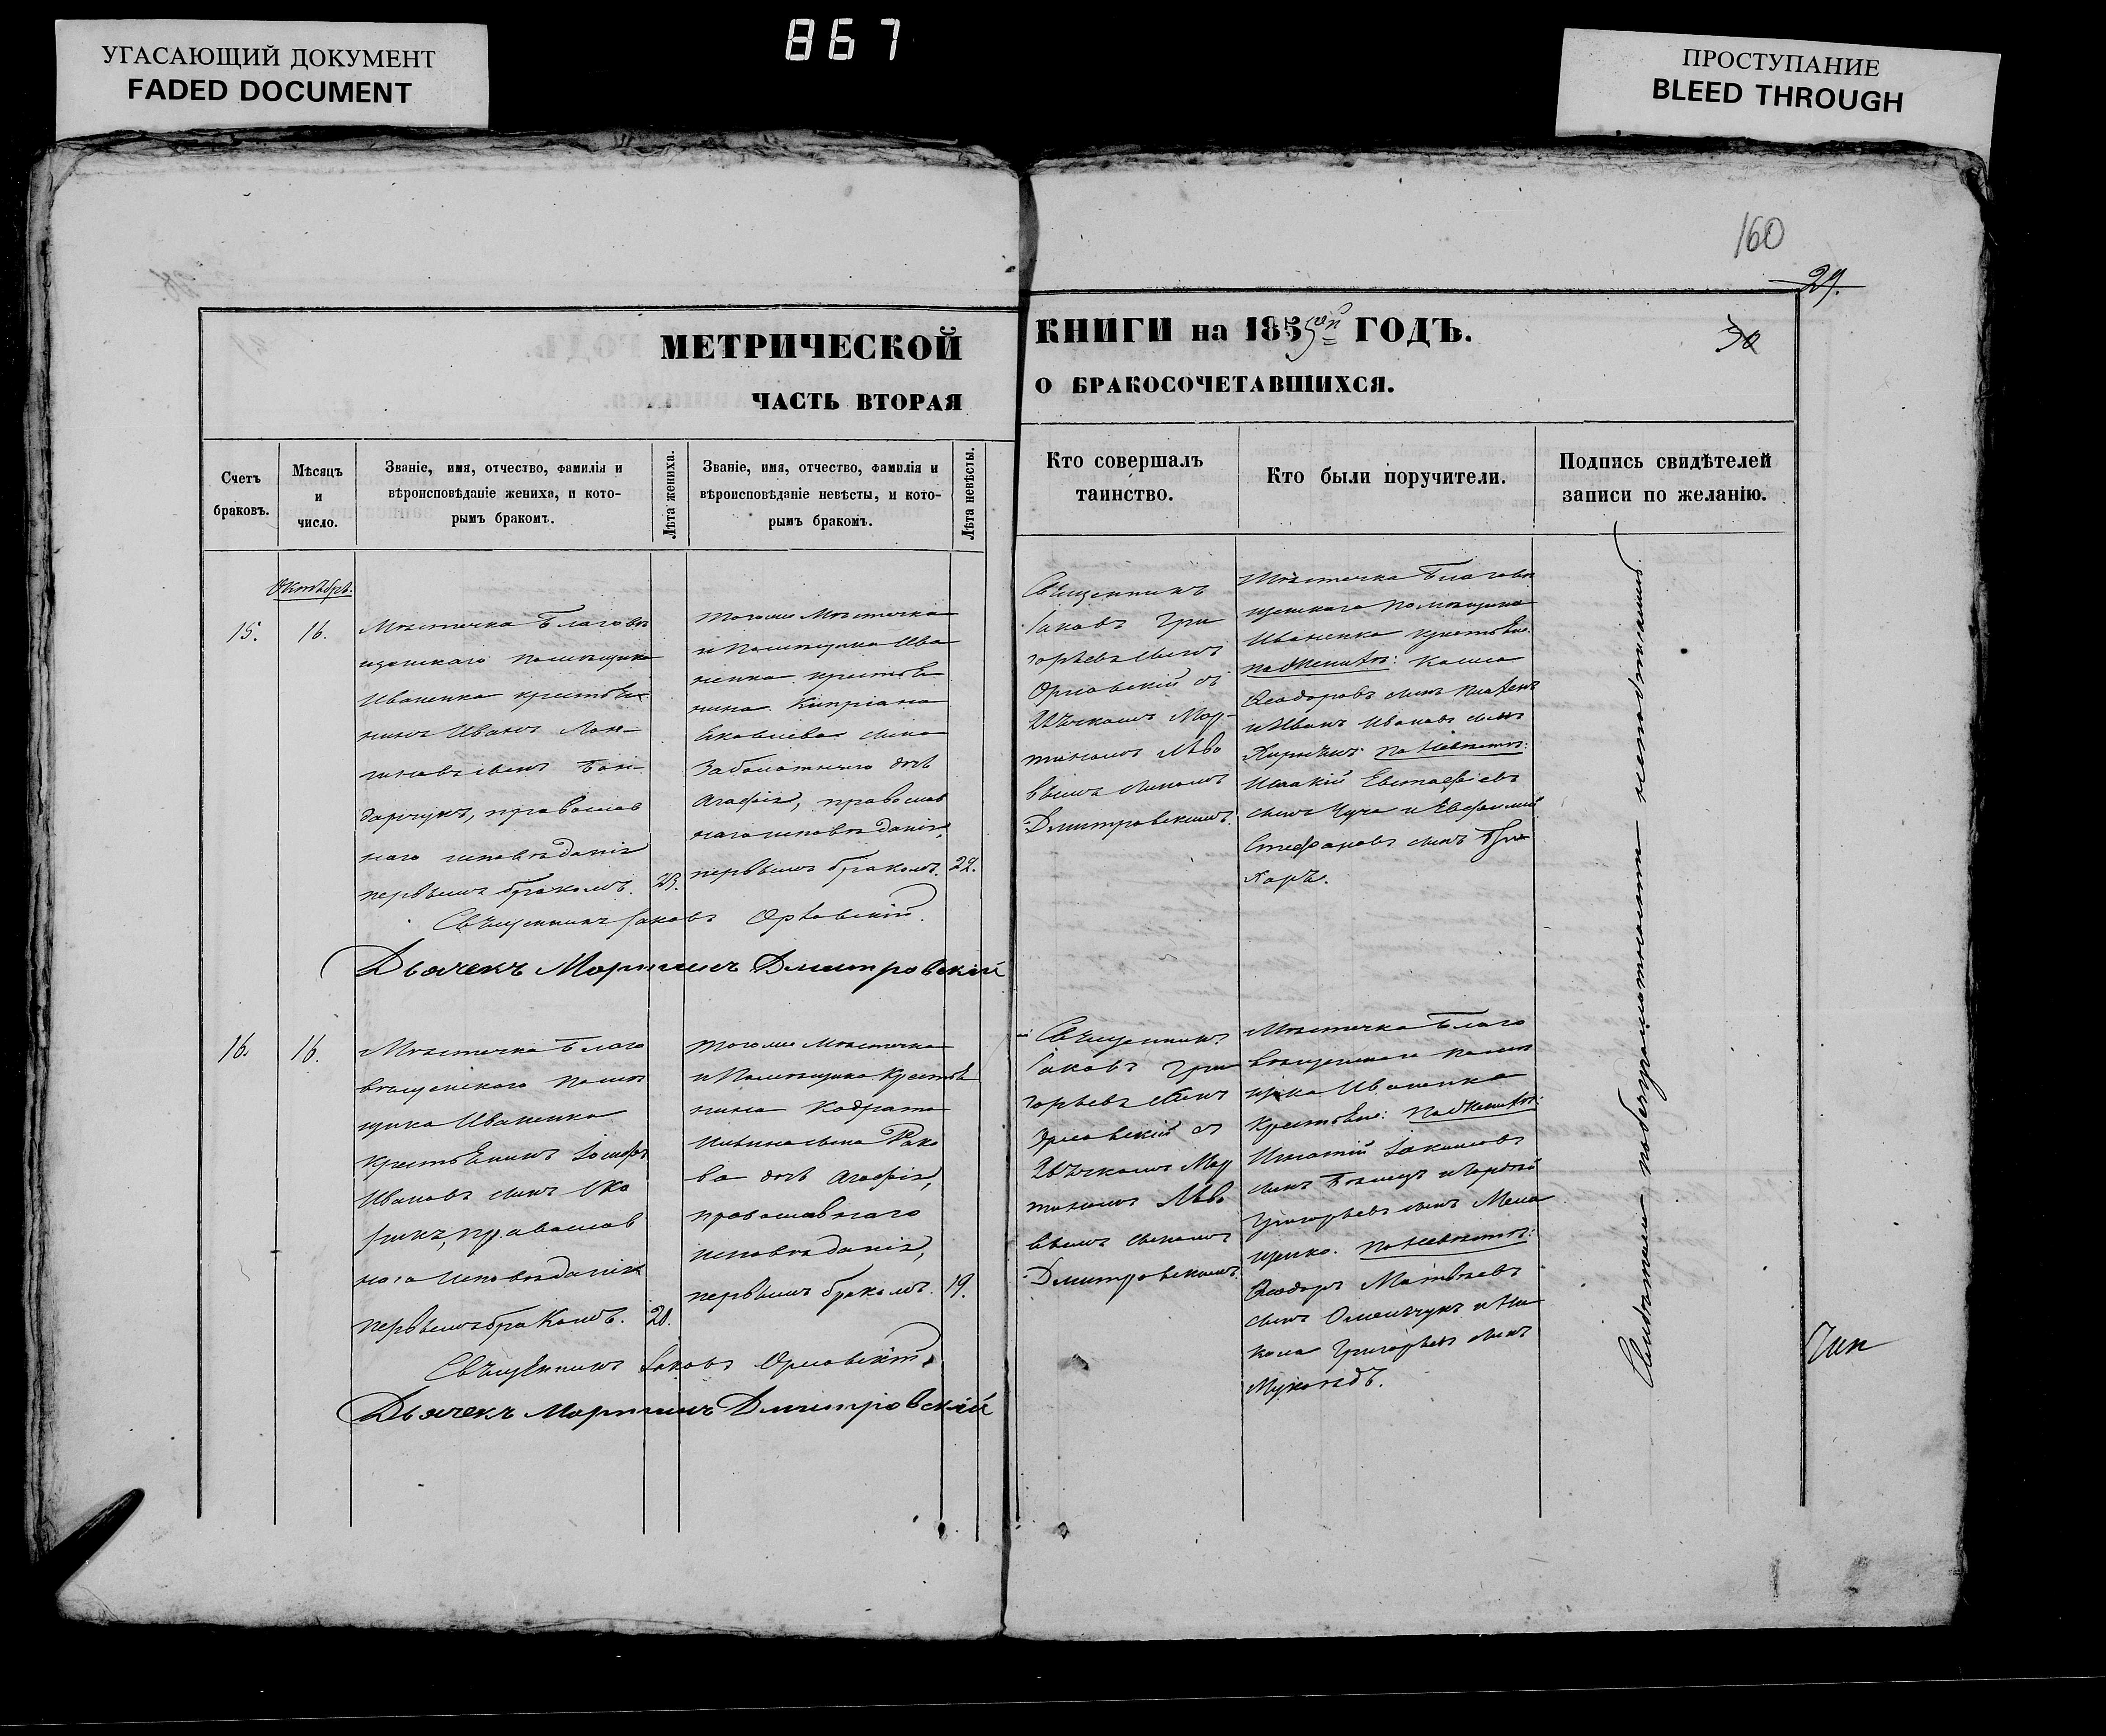 867
УГАСАЮЩИЙ ДОКУМЕНТ
FADED DOCUMENT
ПРОСТУПАНИЕ
BLEED THROUGH
160
29.
30
МЕТРИЧЕСКОЙ КНИГИ на 1855 ой ГОДЪ.
ЧАСТЬ ВТОРАЯ О БРАКОСОЧЕТАВШИХСЯ.
Счетъ
браковъ.
Мѣсяцъ
и
число.
Званіе, имя, отчество, фамилія и
вѣроисповѣданіе жениха, и кото-
рымъ бракомъ.
Лѣта жениха.
Званіе, имя, отчество, фамилія и
вѣроисповѣданіе невѣсты, и кото-
рымъ бракомъ.
Лѣта невѣсты.
Кто совершалъ
таинство.
Кто были поручители.
Подпись свидѣтелей
записи по желанію.
Октябрь.
15.
16.
Мѣстечка Благовѣ
щенскаго помѣщика
Иваненка крестья
нинъ Иванъ Лон-
гиновъ сынъ Бон-
дарчукъ, православ
наго исповѣданія
первымъ бракомъ.
23.
тогоже Мѣстечка
и Помѣщика Ива
ненка крестья
нина Кипріана
Яковлева сына
Заболотнаго дочь
Агафія, православ
наго исповѣданія,
первымъ бракомъ.
22.
Священникъ
Іаковъ Гри
горьевъ сынъ
Орловскій съ
Дьячкомъ Мар-
тиномъ Льво
вымъ сыномъ
Дмитровскимъ.
Мѣстечка Благовѣ
щенскаго помѣщика
Иваненка крестьяне:
по Женихѣ:
Феодоровъ сынъ
и Иванъ Ивановъ сынъ
по Невѣстѣ:
Евстафіевъ
сынъ Чуча и Евфимій
Стефановъ сынъ
Священникъ Іаковъ Орловскій.
Дьячекъ Мартинъ Дмитровскій
16.
16.
Мѣстечка Благо
вѣщенскаго помѣ
щика Иваненка
крестьянинъ Іосифъ
Ивановъ сынъ
православ
наго исповѣданія
первымъ бракомъ.
20.
тогоже Мѣстечка
и Помѣщика крестья
нина Кодрата
Ильина сына Рако
ва дочь Агафія,
православнаго
исповѣданія,
первымъ бракомъ.
19.
Священникъ
Іаковъ Гри
горьевъ сынъ
Орловскій съ
Дьячкомъ Мар
тиномъ Льво
вымъ сыномъ
Дмитровскимъ.
Мѣстечка Благо
вѣщенскаго помѣ
щика Иваненка
крестьяне: по Женихѣ:
Игнатій
сынъ и Гордій
Григорьевъ сынъ
по Невѣстѣ:
Феодоръ Матвѣевъ
сынъ Омельчукъ и Ни
кола Григорьевъ сынъ
Священникъ Іаковъ Орловскій
Дьячекъ Мартинъ Дмитровскій